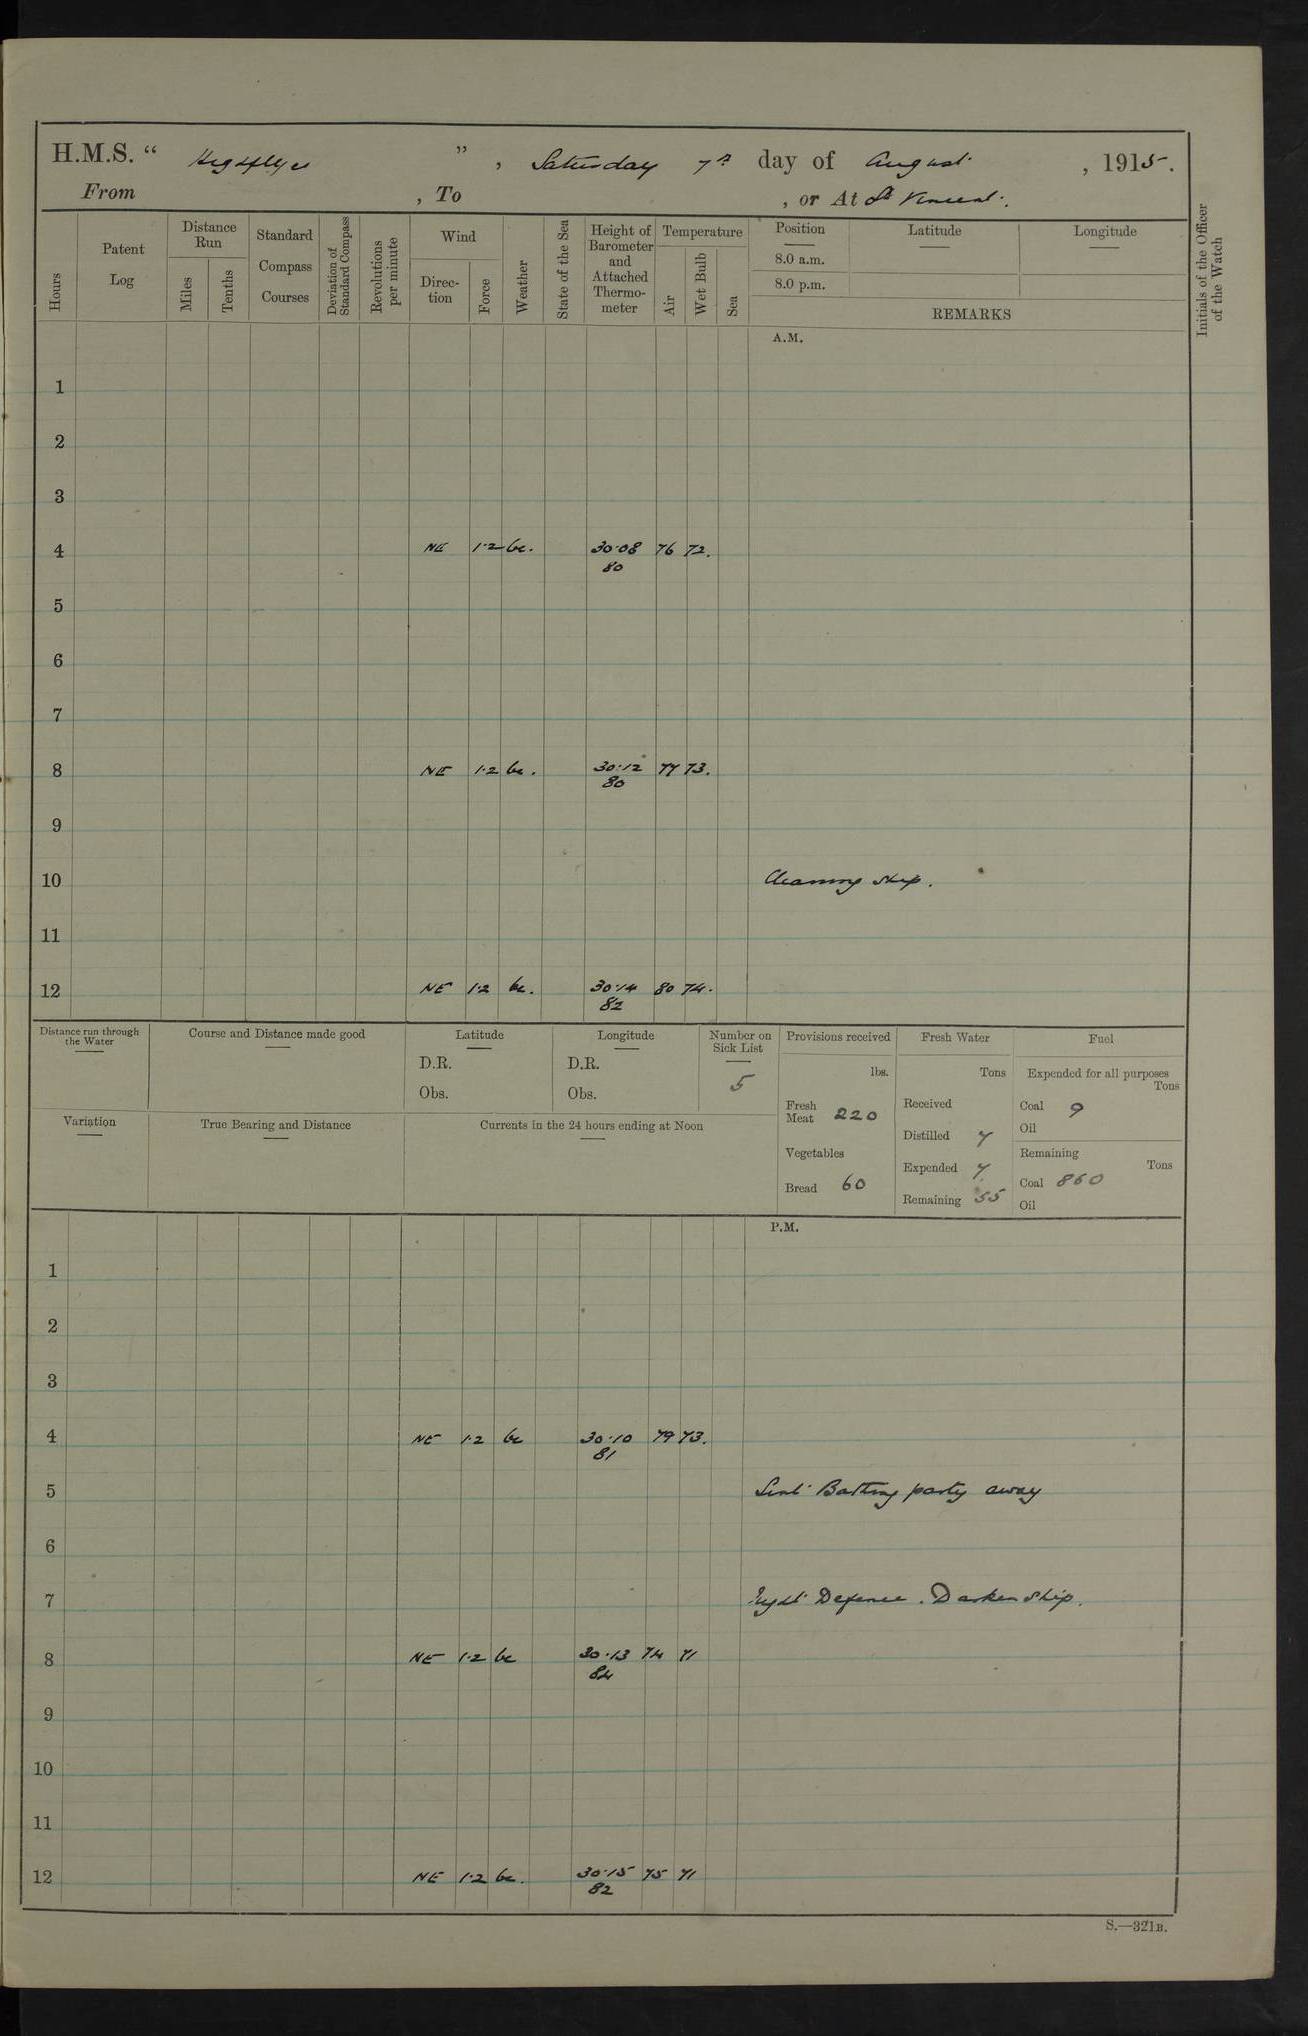 H.M.S. “ Highflyer ” , Saturday 7th day of August , 1915.
From , To , or At St Vincent.
Hours
Patent Log
Distance Run
Miles
Tenths
Standard Compass Courses
Deviation of Standard Compass
Revolutions per minute
Wind
Direction
Force
Weather
State of the Sea
Height of Barometer and Attached Thermometer
Temperature
Air
Wet Bulb
Sea
Position
8.0 a.m.
8.0 p.m.
Latitude
Longitude
REMARKS
Initials of the Officer of the Watch
A.M.
1
2
3
4 NE 1·2 bc. 30·08 76 72.
80
5
6
7
8 NE 1·2 bc. 30·12 77 73.
80
9
10 Cleaning ship.
11
12 NE 1·2 bc. 30·14 80 74.
82
Distance run through the Water
Course and Distance made good
Latitude
D.R.
Obs.
Longitude
D.R.
Obs.
Number on Sick List
5
Provisions received
lbs.
Fresh Meat 220
Vegetables
Bread 60
Fresh Water
Tons
Received
Distilled 7
Expended 7
Remaining 55
Fuel
Expended for all purposes
Tons
Coal 9
Oil
Remaining
Tons
Coal 860
Oil
Variation
True Bearing and Distance
Currents in the 24 hours ending at Noon
P.M.
1
2
3
4 NE 1·2 bc 30·10 79 73.
81
5 Sent Bathing party away
6
7 Night Defence. Darken Ship.
8 NE 1·2 bc 30·13 74 71
84
9
10
11
12 NE 1·2 bc. 30·15 75 71
82
S.—321B.